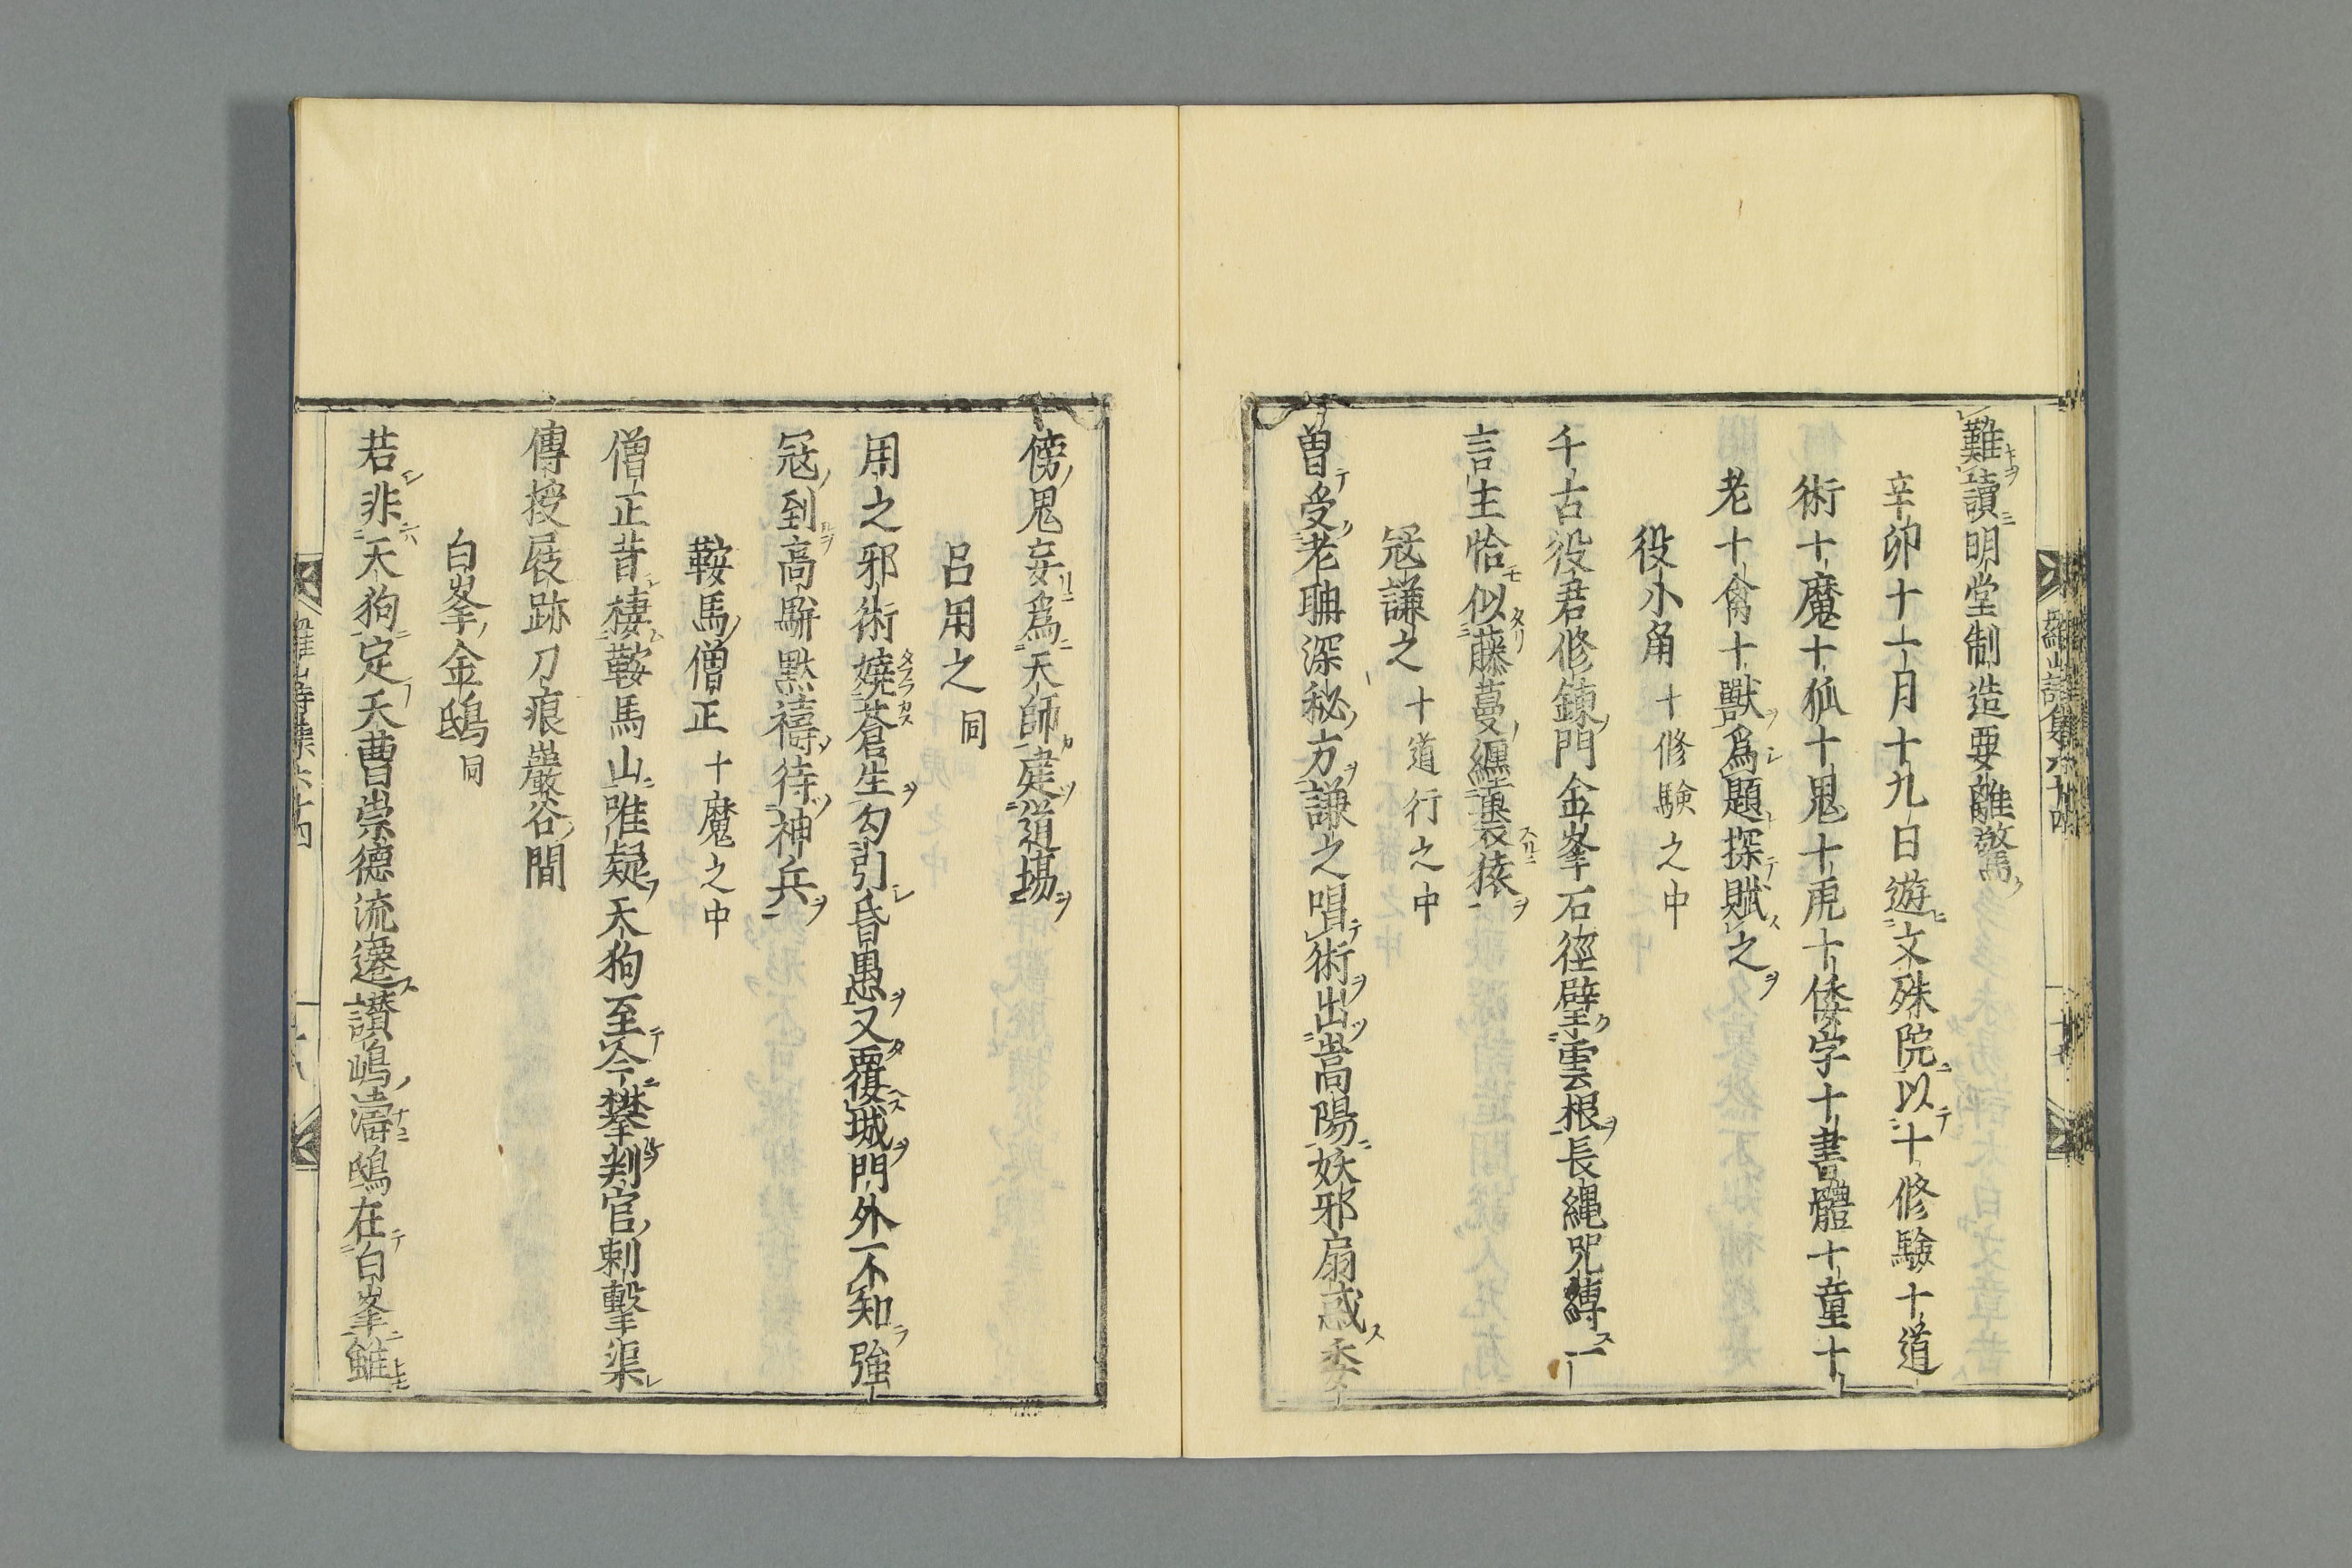 難讀明堂制造要離驚
辛卯十一月十九日遊文殊院以十修驗十道
術十魔十狐十鬼十虎十倭字十書體十童十
老十禽十獸爲題探賦之
役小角 十修驗之中
千古役君修鍊門金峯石徑躄雲根長縄咒縛一
言主恰似藤蔓纏裹猿
冦謙之 十道行之中
曽受老聃深秘方謙之唱術出嵩陽妖邪扇惑委
傍鬼妄爲天師建道場
呂用之 同
用之邪術嬈蒼生勾引昏愚又覆城門外不知強
冦到高駢黙禱待神兵
鞍馬僧正 十魔之中
僧正昔棲鞍馬山唯疑天狗至今攀判官刺擊渠
傳授屐跡刀痕巖谷間
白峯金鴟 同
若非天狗定天曹崇德流遷讃嶋濤鴟在白峯雖